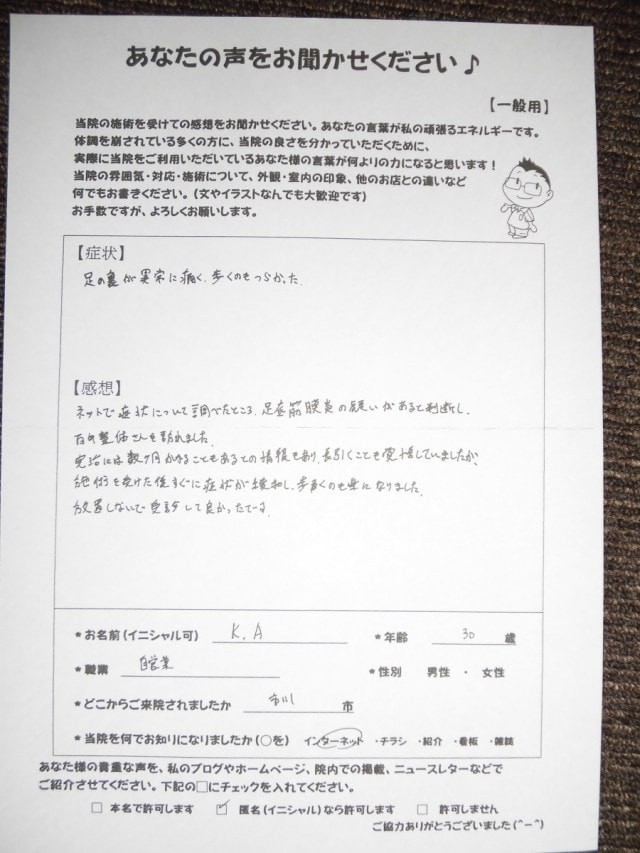 あなたの声をお聞かせください♪
【一般用】
当院の施術を受けての感想をお聞かせください。あなたの言葉が私の頑張るエネルギーです。
体調を崩されている多くの方に、当院の良さを分かっていただくために、
実際に当院をご利用いただいているあなた様の言葉が何よりの力になると思います!
当院の雰囲気・対応・施術について、外観・室内の印象、他のお店との違いなど
何でもお書きください。(文やイラストなんでも大歓迎です)
お手数ですが、よろしくお願いします。
【症状】
足の裏が異常に痛く、歩くのもつらかった。
【感想】
ネットで症状について調べたところ、足底筋膜炎の疑いがあると判断し、
整体さんを訪れました。
完治には数ヶ月かかることもあるとの情報もあり、長引くことも覚悟していましたが、
施術を受けた後すぐに症状が緩和し、歩くのも楽になりました。
放置しないで受診して良かったです。
*お名前(イニシャル可) K.A *年齢 30 歳
*職業 自営業 *性別 男性 ・ 女性
*どこからご来院されましたか 市川 市
*当院を何でお知りになりましたか(○を) インターネット ・チラシ ・紹介 ・看板 ・雑誌
あなた様の貴重な声を、私のブログやホームページ、院内での掲載、ニュースレターなどで
ご紹介させてください。下記の□にチェックを入れてください。
□ 本名で許可します ☑ 匿名(イニシャル)なら許可します □ 許可しません
ご協力ありがとうございました(^-^)